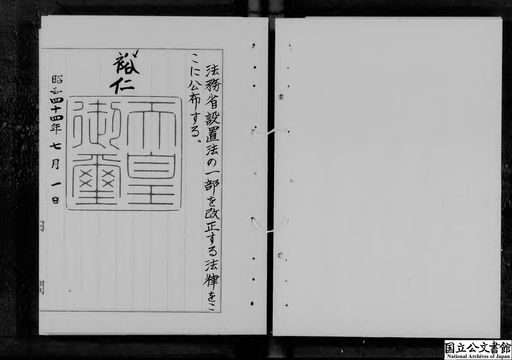 法務省設置法の一部を改正する法律をこ
こに公布する、
裕仁
天皇
御璽
昭和四十四年七月一日
内閣
国立公文書館
National Archives of Japan